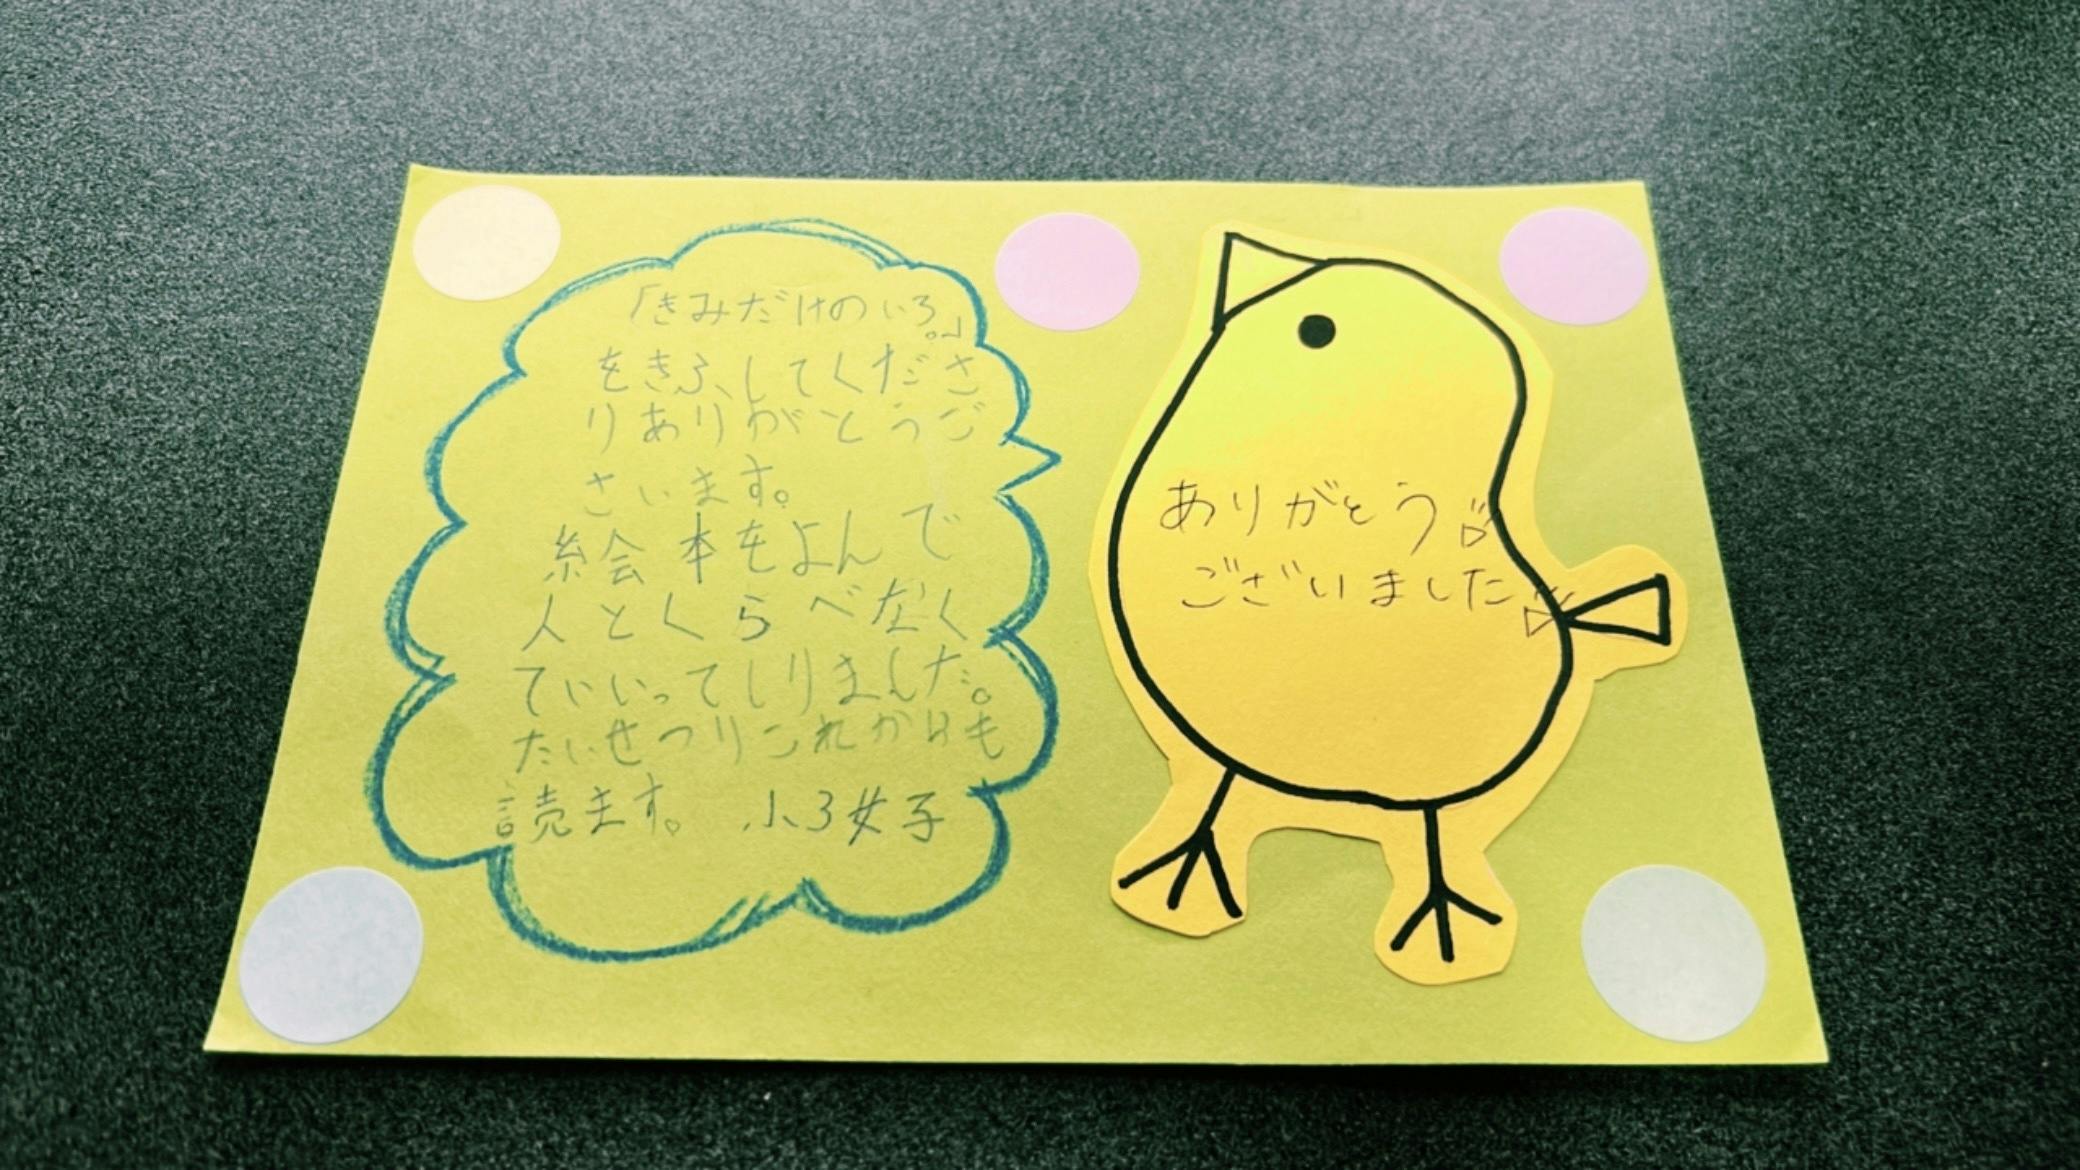 「きみだけのいろ。」
をきふしてくださ
りありがとうご
さいます。
絵本をよんで
人とくらべなく
ていいってしりました。
たいせつりこれからも
読ます。 小3女子
ありがとう
ございました